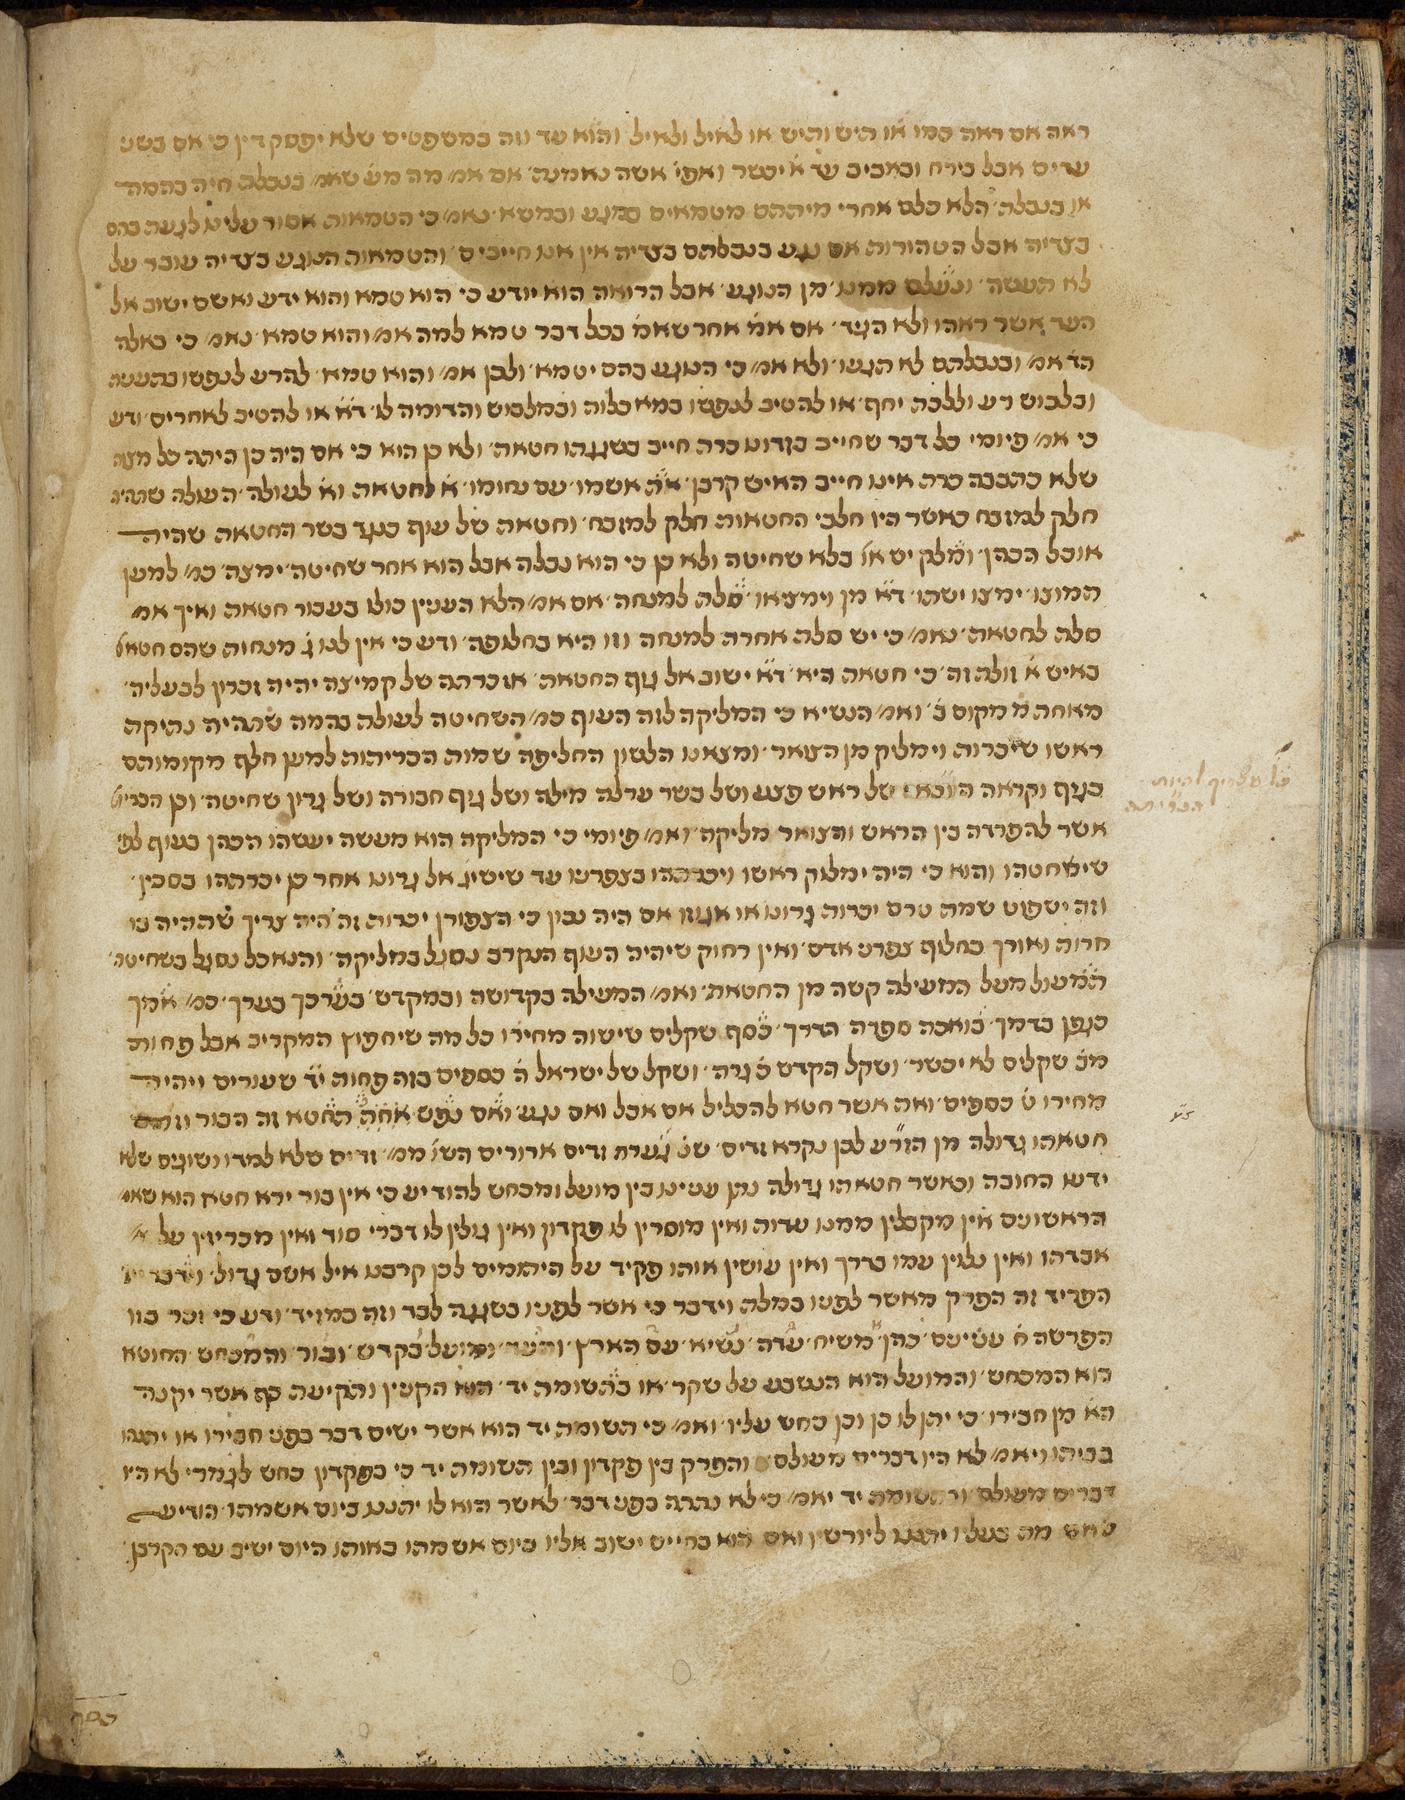 ראה אם ראה כמו או היש והיש או לאיל ולאיל והוא עד וזה במשפטים שלא יפסק דין כי אם בשני
עדים אבל בירח ובאביב עד א׳ יכשר ואפי׳ אשה נאמנה׳ אם אמ׳ מה מע׳ שאמ׳ בנבלת חיה בהמה
או בנבלה׳ הלא כלם אחרי מיתתם מטמאים במגע ובמשא׳ נאמ׳ כי הטמאות אסור עלינו לנגעה בהם
בצדיה אבל הטהורות אם נגע בנבלתם בצדיה אין אנו חייבים׳ והטמאות הנוגע בצדיה עובר על
לא תעשה׳ ונעלם ממנו׳ מן הנוגע׳ אבל הרואה הוא יודע כי הוא טמא והוא ידע ואשם ישוב אל
העד אשר ראהו ולא הגיד׳ אם אמ׳ אחר שאמ׳ בכל דבר טמא למה אמ׳ והוא טמא׳ נאמ׳ כי באלה
הד׳ אמ׳ ובנבלתם לא תגעו׳ ולא אמ׳ כי הנוגע בהם יטמא׳ ולכן אמ׳ והוא טמא׳ להרע לנפשו בתענית
ובלבוש רע וללכת יחף׳ או להטיב לנפשו במאכלות ובמלבוש והדומה לו׳ ד״א או להטיב לאחרים׳ ודע
כי אמ׳ פיומי כל דבר שחייב בזדונו כרת חייב בשגגתו חטאת׳ ולא כן הוא כי אם היה כן היתה כל מצוה
שלא כתב בה כרת אינו חייב האיש קרבן׳ את אשמו׳ עם נחומו׳ א׳ לחטאת וא׳ לעולה׳ העולה שתהיה
חלק למזבח כאשר היו חלבי החטאות חלק למזבח׳ וחטאת של עוף כנגד בשר החטאת שהיה
אוכל הכהן׳ ומלק יש או׳ בלא שחיטה ולא כן כי הוא נבלה אבל הוא אחר שחיטה׳ ימצה׳ כמ׳ למען
תמוצו׳ ימצו ישתו׳ ד״א מן וימציאו׳ סלת למנחה׳ אם אמ׳ הלא הענין כולו בעבור חטאת ואיך אמ׳
סלת לחטאת׳ נאמ׳ כי יש סלת אחרת למנחה וזו היא בחלופה׳ ודע כי אין לנו ג׳ מנחות שהם חטאו׳
באיש א׳ זולת זה׳ כי חטאת היא׳ ד״א ישוב אל גוף החטאת׳ אזכרתה של קמיצה יהיה זכרון לבעליה׳
מאחת מ׳ מקום ב׳׳ ואמ׳ הנשיא כי המליקה לזה העוף כמ׳ השחיטה לעולת בהמה שתהיה נתיקת
ראשו שיכרות וימליק מן הצואר׳ ומצאנו הלשון החליפה שמות הכריתות למען חלוף מקומותם
בגוף וקראה של ראש פצע ושל בשר ערלה מילה ושל גוף חבורה ושל גרון שחיטה׳ וכן הכרית׳
אשר להפרדה בין הראש והצואר מליקה׳ ואמ׳ פיומי כי המליקה הוא מעשה יעשהו הכהן בעוף לפני
שישחטהו והוא כי היה ימלוק ראשו ויכרתהו בצפרנו עד שישיג אל גרונו אחר כן יכרתהו בסכין׳
וזה ישפוט שמה טרם יכרות גרונו או אגוזו אם היה נכון כי הצפורן יכרות זה׳ היה צריך שתהיה בו
חדות ואורך בחלוף צפרני אדם׳ ואין רחוק שיהיה העוף הנקרב נסגל במליקה׳ והנאכל נסגל בשחיטה׳
תמעול מעל המעילה קשה מן החטאת׳ ואמ׳ המעילה בקדושה ובמקדש׳ בערכך בערך׳ כמ׳ אמך
כגפן בדמך׳ בואכה ספרה הדרך׳ כסף שקלים שישוה מחירו כל מה שיחפוץ המקריב אבל פחות
מב׳ שקלים לא יכשר׳ ושקל הקדש כ׳ גרה׳ ושקל של ישראל ה׳ כספים בזה פחות י״ד שעורים ויהיה
מחירו ט׳ כספים׳ ואת אשר חטא להכליל אם אכל ואם נגע׳ ואם נפש אחת תחטא זה הבור וזאת
חטאתו גדולה מן הזרע לכן נקרא זדים׳ שנ׳ גערת זדים ארורים השו׳ ממ׳ זדים שלא למדו ושוגים שלא
ידעו החובה וכאשר חטאתו גדולה נתן ענינו בין מועל ומכחש להודיע כי אין בור ירא חטא הוא שאמ׳
הראשונים אין מקבלין ממנו עדות ואין מוסרין לו פקדון ואין גולין לו דברי סוד ואין מכריזין על
אבדתו ואין נלוין עמו בדרך ואין עושין אותו פקיד על היתומים לכן קרבנו איל אשם גדול׳
הפריד זה הפרק מאשר לפניו במלת וידבר כי אשר לפניו בשגגה לבד וזה במזיד׳ ודע כי זכר בזו
הפרשה ח׳ ענינים׳ כהן משיח׳ עדה׳ נשיא׳ עם הארץ׳ והעד׳ ומועל בקדש׳ ובור׳ והמכחש׳ החוטא
הוא המכחש׳ והמועל הוא הנשבע על שקר׳ או בתשומת יד׳ הוא הקנין ותקיעת כף אשר יקנה
הא׳ מן חבירו׳ כי יתן לו כן וכן כחש עליו׳ ואמ׳ כי תשומת יד הוא אשר ישים דבר בפני חבירו או יתנהו
בביתו ויאמ׳ לא היו דברים מעולם׳ והפרק בין פקדון ובין תשומת יד כי בפקדון כחש לגמרי לא היו
דברים מעולם׳ ותשומת יד יאמ׳ כי לא נתת בפני דבר׳ לאשר הוא לו יתננו ביום אשמתו׳ הודיע
מת בעליו יתננו ליורשיו ואם הוא בחיים ישוב אליו ביום אשמתו באותו היום ישיב עם הקרבן׳